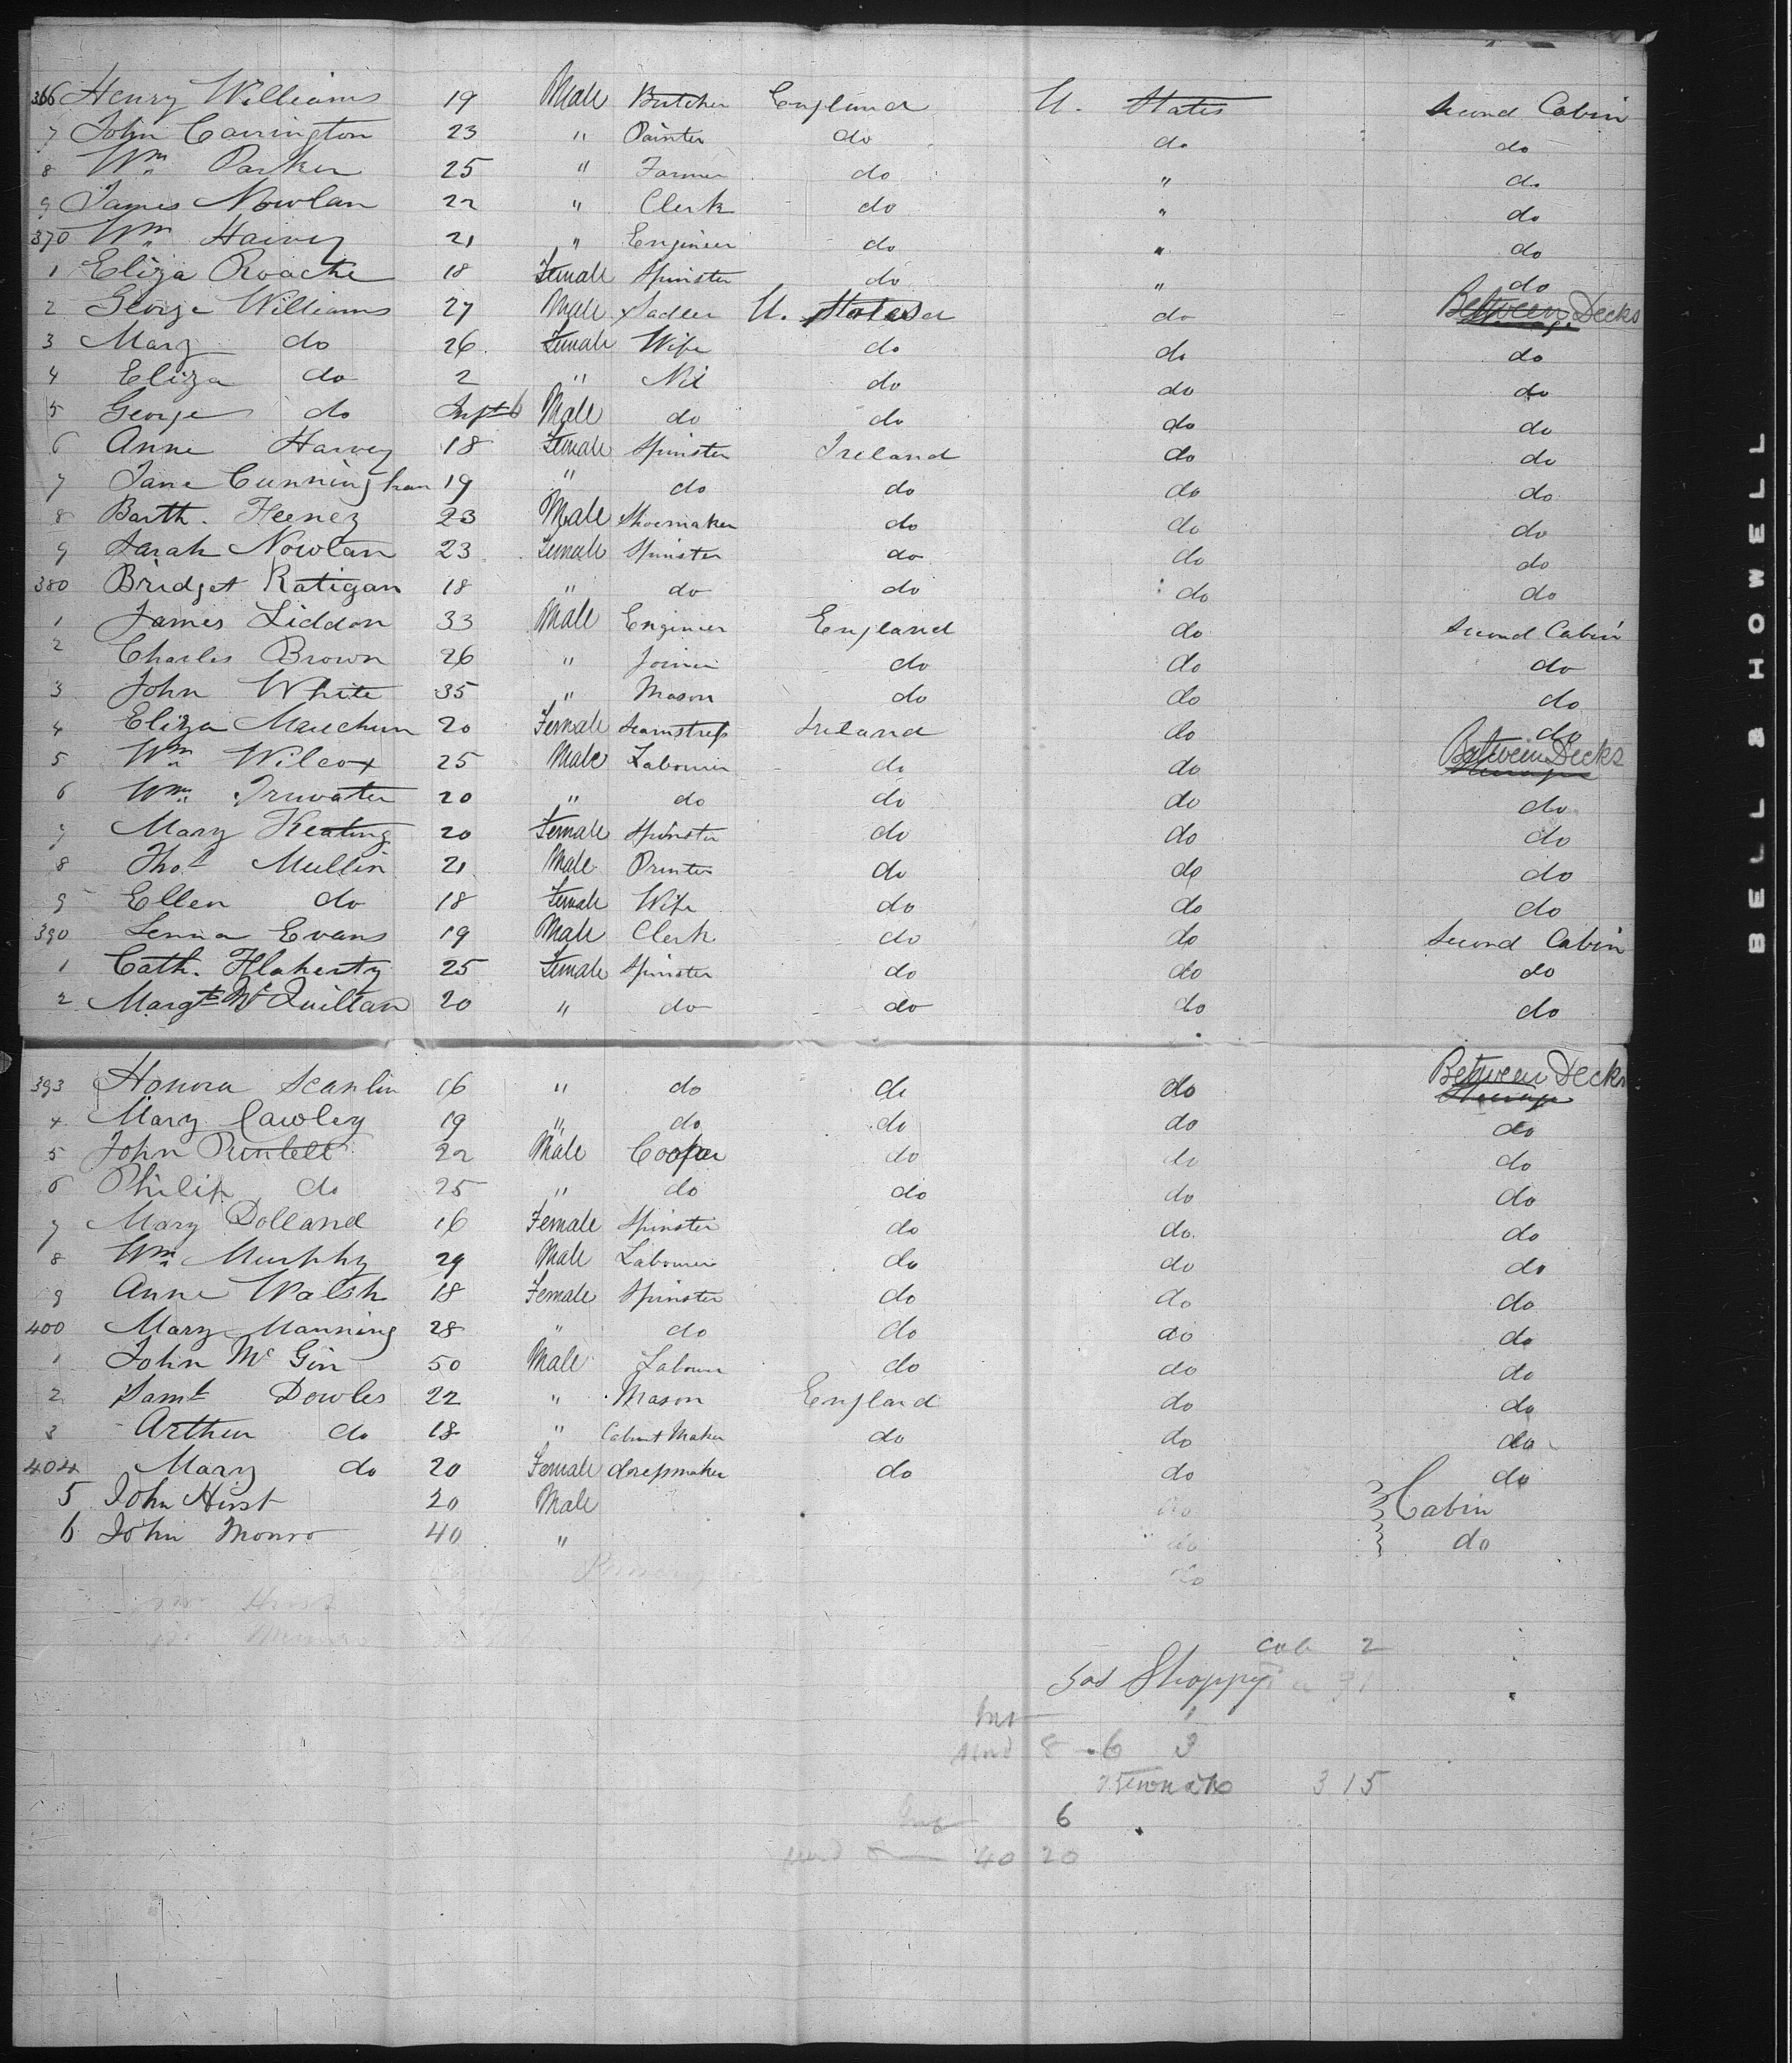 366 Henry Williams 19 Male Butcher England U. States Second Cabin
7 John Carrington 23 " Painter do do do
8 Wm Parker 25 " Farmer do " do
9 James Nowlan 22 " Clerk do " do
370 Wm Harvey 21 " Engineer do " do
1 Eliza Roache 18 Female Spinster do " do
2 George Williams 27 Male Sadler U. States do Between Decks
3 Mary do 26 Female Wife do do do
4 Eliza do 2 " Nil do do do
5 George do Inft 6 Male do do do do
6 Anne Harvey 18 Female Spinster Ireland do do
7 Jane Cunningham 19 " do do do do
8 Barth. Feeney 23 Male Shoemaker do do do
9 Sarah Nowlan 23 Female Spinster do do do
380 Bridget Ratigan 18 " do do do do
1 James Liddon 33 Male Engineer England do Second Cabin
2 Charles Brown 26 " Joiner do do do
3 John White 35 " Mason do do do
4 Eliza 20 Female Seamstress Ireland do do
5 Wm Wilcox 25 Male Labourer do do Between Decks
6 Wm 20 " do do do do
7 Mary Keating 20 Female Spinster do do do
8 Thos Mullin 21 Male Printer do do do
9 Ellen do 18 Female Wife do do do
390 Evans 19 Male Clerk do do Second Cabin
1 Cath. Flaherty 25 Female Spinster do do do
2 Margt Mc Quillan 20 " do do do do
393 Honora Scanlin 16 " do do do Between Decks
4 Mary Cawley 19 " do do do do
5 John 22 Male Cooper do do do
6 Philip do 25 " do do do do
7 Mary Dolland 16 Female Spinster do do do
8 Wm Murphy 29 Male Labourer do do do
9 Anne Walsh 18 Female Spinster do do do
400 Mary Manning 28 " do do do do
1 John Mc Gin 50 Male Labourer do do do
2 Saml Dowles 22 " Mason England do do
3 Arthur do 18 " Cabinet Maker do do do
404 Mary do 20 Female dressmaker do do do
5 John Hirst 20 Male do Cabin
6 John Monro 40 " do do
do
Cab 2
31
8 6 3
315
6
40 20
BELL & HOWELL